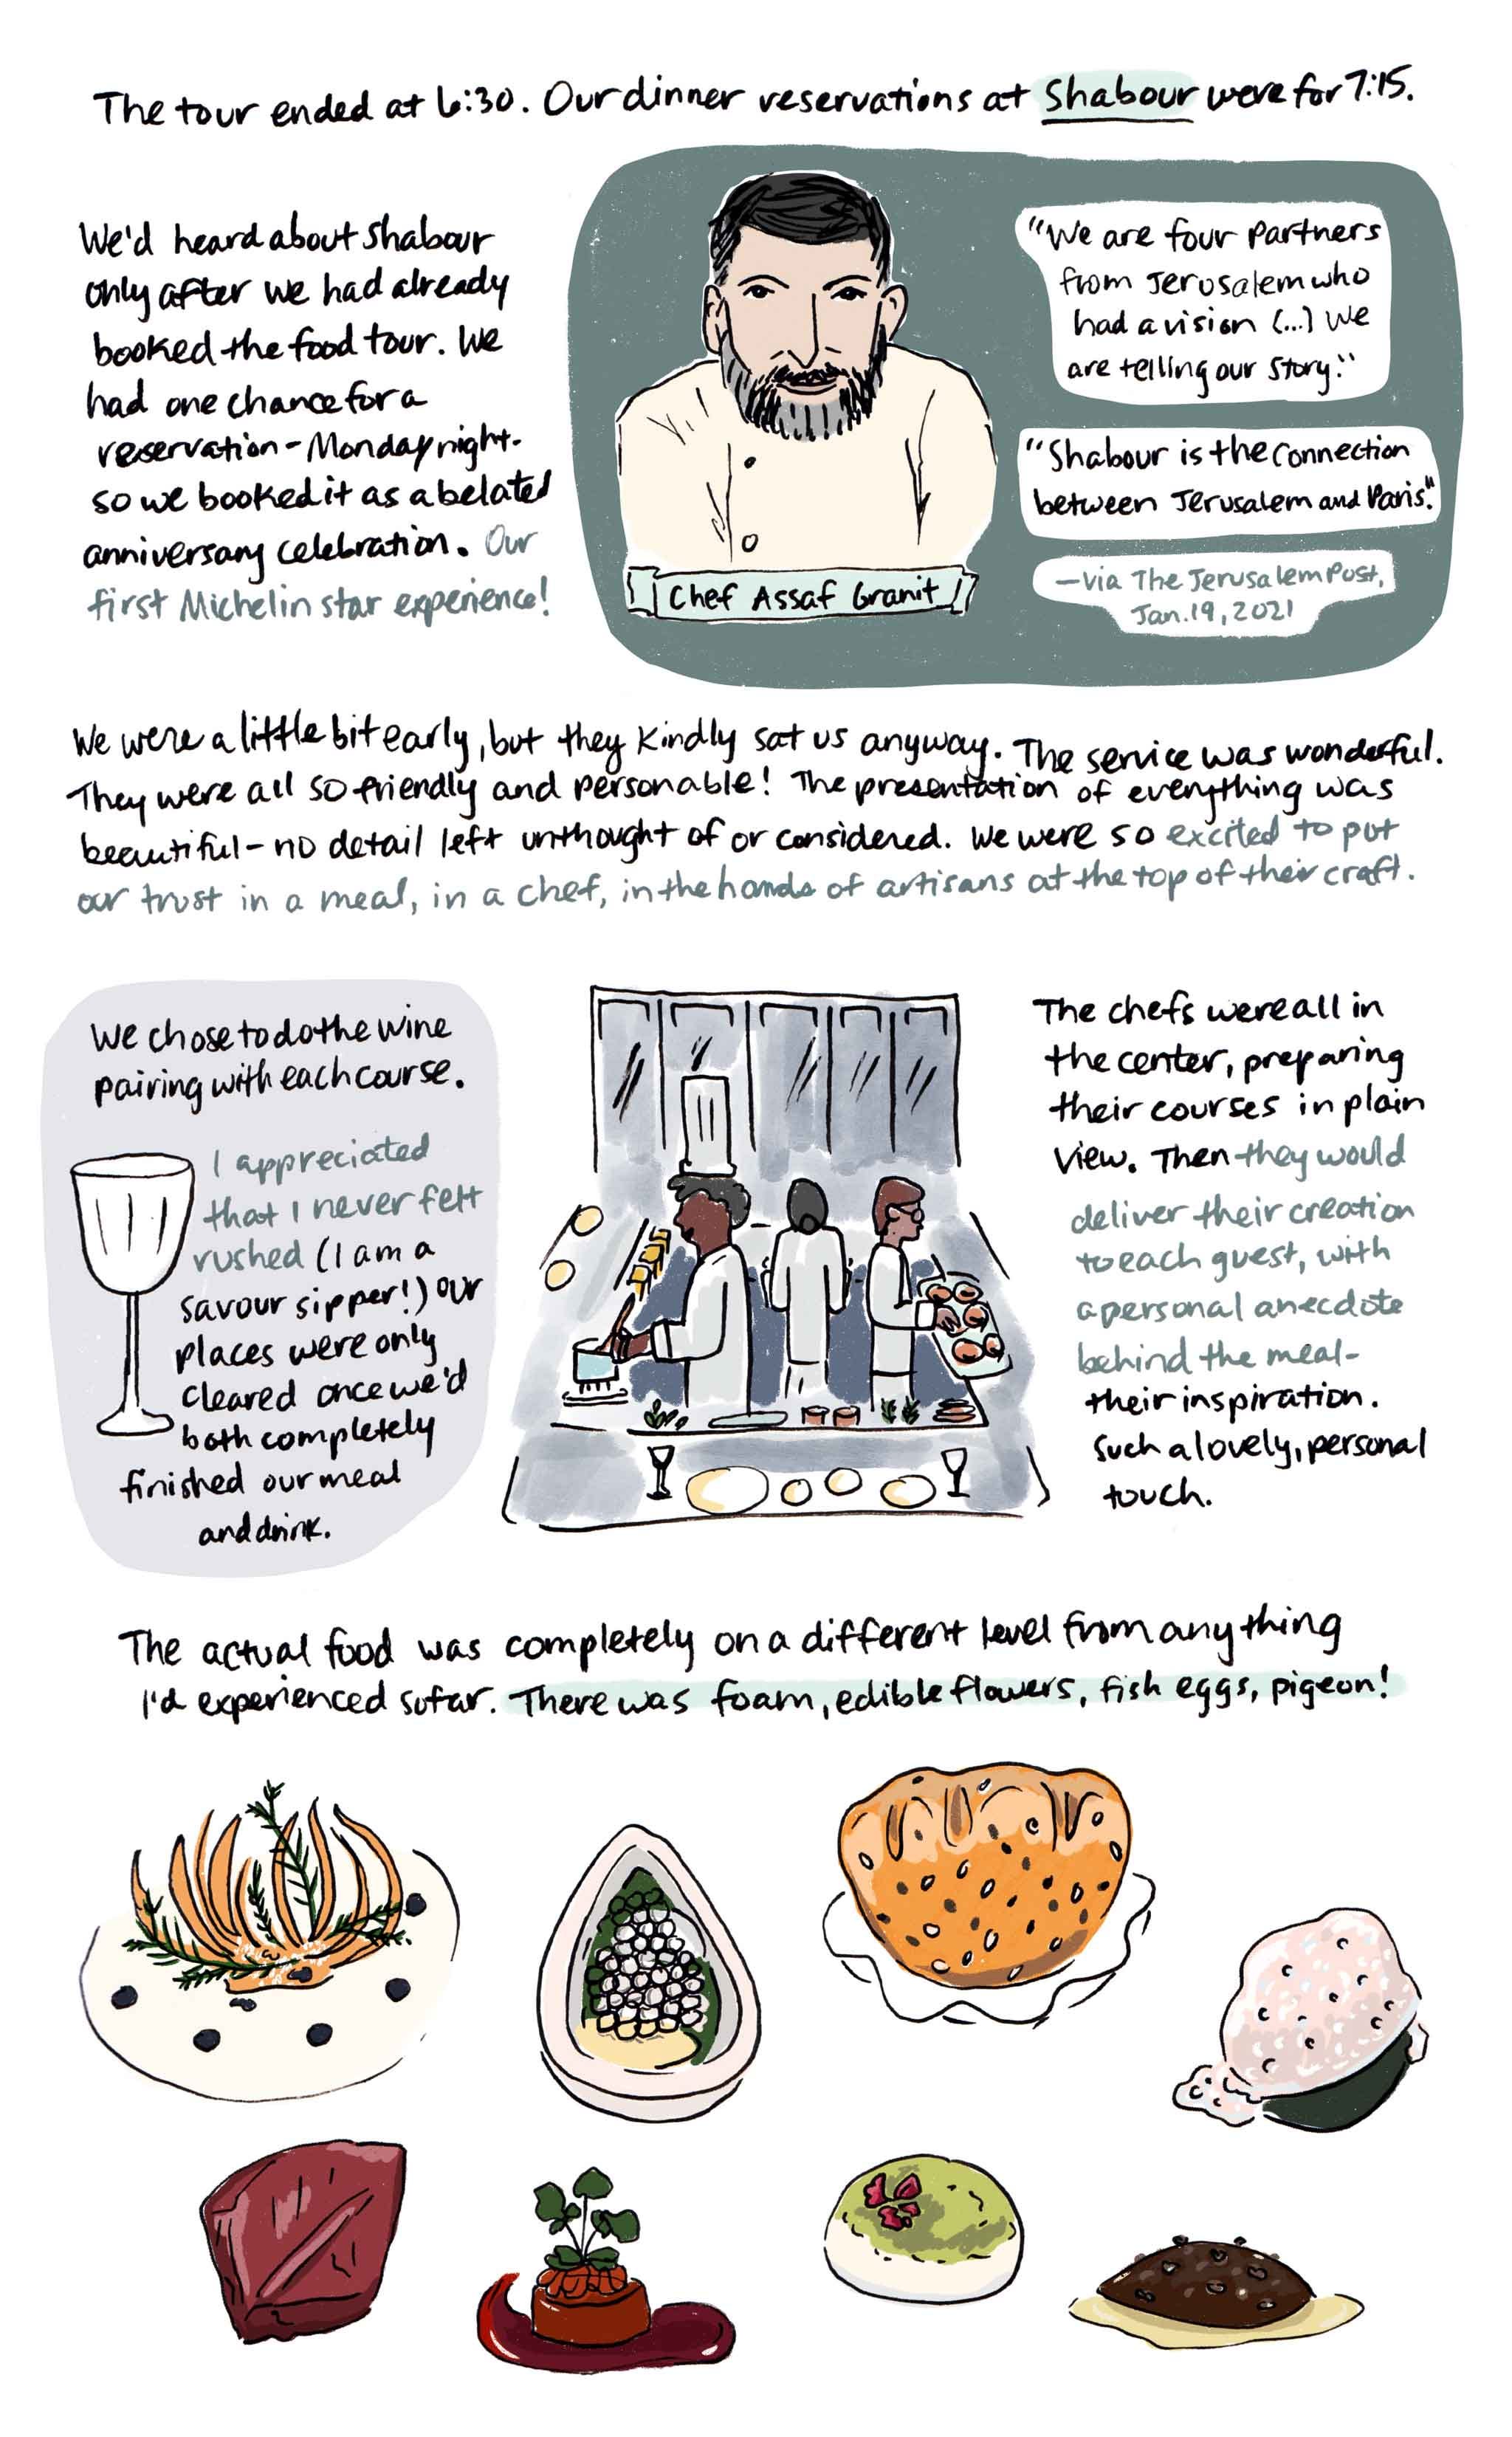 The tour ended at 6:30. Our dinner reservations at Shabour were for 7:15.
We'd heard about Shabour
only after we had already
booked the food tour. We
had one chance for a
reservation - Monday night -
so we booked it as a belated
anniversary celebration. Our
first Michelin star experience!
"We are four partners
from Jerusalem who
had a vision (...) We
are telling our story."
"Shabour is the connection
between Jerusalem and Paris."
- via The Jerusalem Post,
Jan. 19, 2021
Chef Assaf Granit
We were a little bit early, but they kindly sat us anyway. The service was wonderful.
They were all so friendly and personable! The presentation of everything was
beautiful - no detail left unthought of or considered. We were so excited to put
our trust in a meal, in a chef, in the hands of artisans at the top of their craft.
We chose to do the wine
pairing with each course.
I appreciated
that I never felt
rushed (I am a
savour sipper!) our
places were only
cleared once we'd
both completely
finished our meal
and drink.
The chefs were all in
the center, preparing
their courses in plain
view. Then they would
deliver their creation
to each guest, with
a personal anecdote
behind the meal -
their inspiration.
Such a lovely, personal
touch.
The actual food was completely on a different level from anything
I'd experienced so far. There was foam, edible flowers, fish eggs, pigeon!